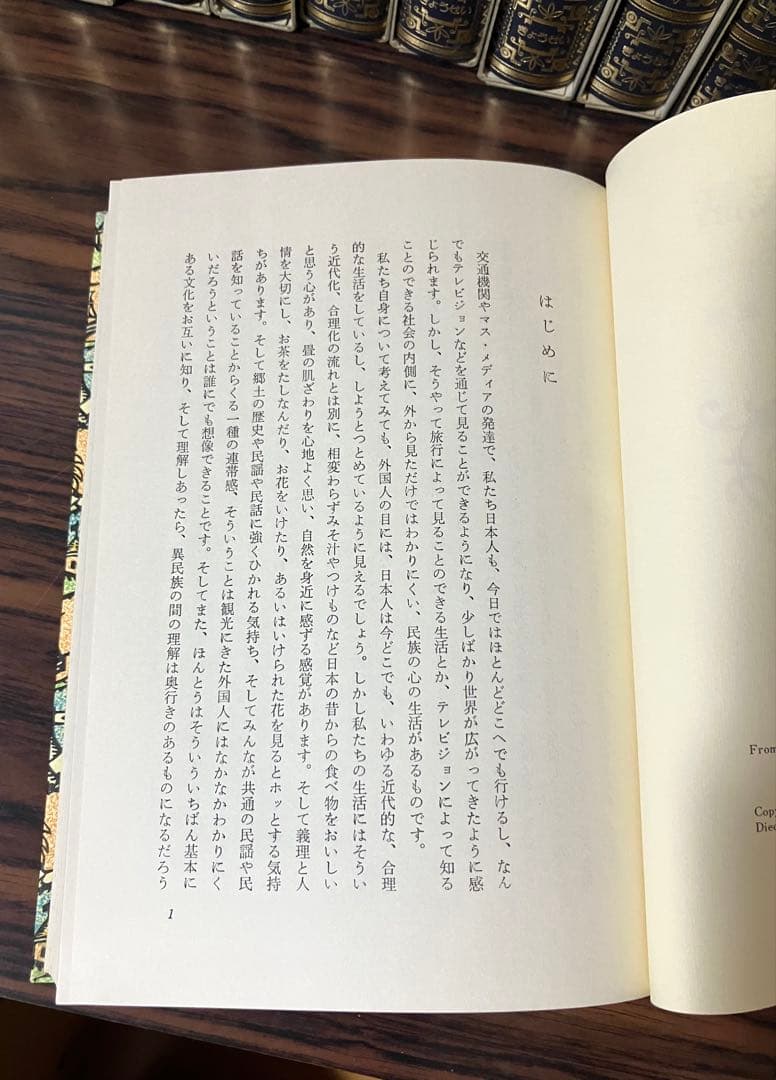 はじめに
交通機関やマス・メディアの発達で、私たち日本人も、今日ではほとんどどこへでも行けるし、なん
でもテレビジョンなどを通じて見ることができるようになり、少しばかり世界が広がってきたように感
じられます。しかし、そうやって旅行によって見ることのできる生活とか、テレビジョンによって知る
ことのできる社会の内側に、外から見ただけではわかりにくい、民族の心の生活があるものです。
私たち自身について考えてみても、外国人の目には、日本人は今どこでも、いわゆる近代的な、合理
的な生活をしているし、しようとつとめているように見えるでしょう。しかし私たちの生活にはそうい
う近代化、合理化の流れとは別に、相変わらずみそ汁やつけものなど日本の昔からの食べ物をおいしい
と思う心があり、畳の肌ざわりを心地よく思い、自然を身近に感ずる感覚があります。そして義理と人
情を大切にし、お茶をたしなんだり、お花をいけたり、あるいはいけられた花を見るとホッとする気持
ちがあります。そして郷土の歴史や民謡や民話に強くひかれる気持ち、そしてみんなが共通の民謡や民
話を知っていることからくる一種の連帯感、そういうことは観光にきた外国人にはなかなかわかりにく
いだろうということは誰にでも想像できることです。そしてまた、ほんとうはそういういちばん基本に
ある文化をお互いに知り、そして理解しあったら、異民族の間の理解は奥行きのあるものになるだろう
1
From
Copy
Died